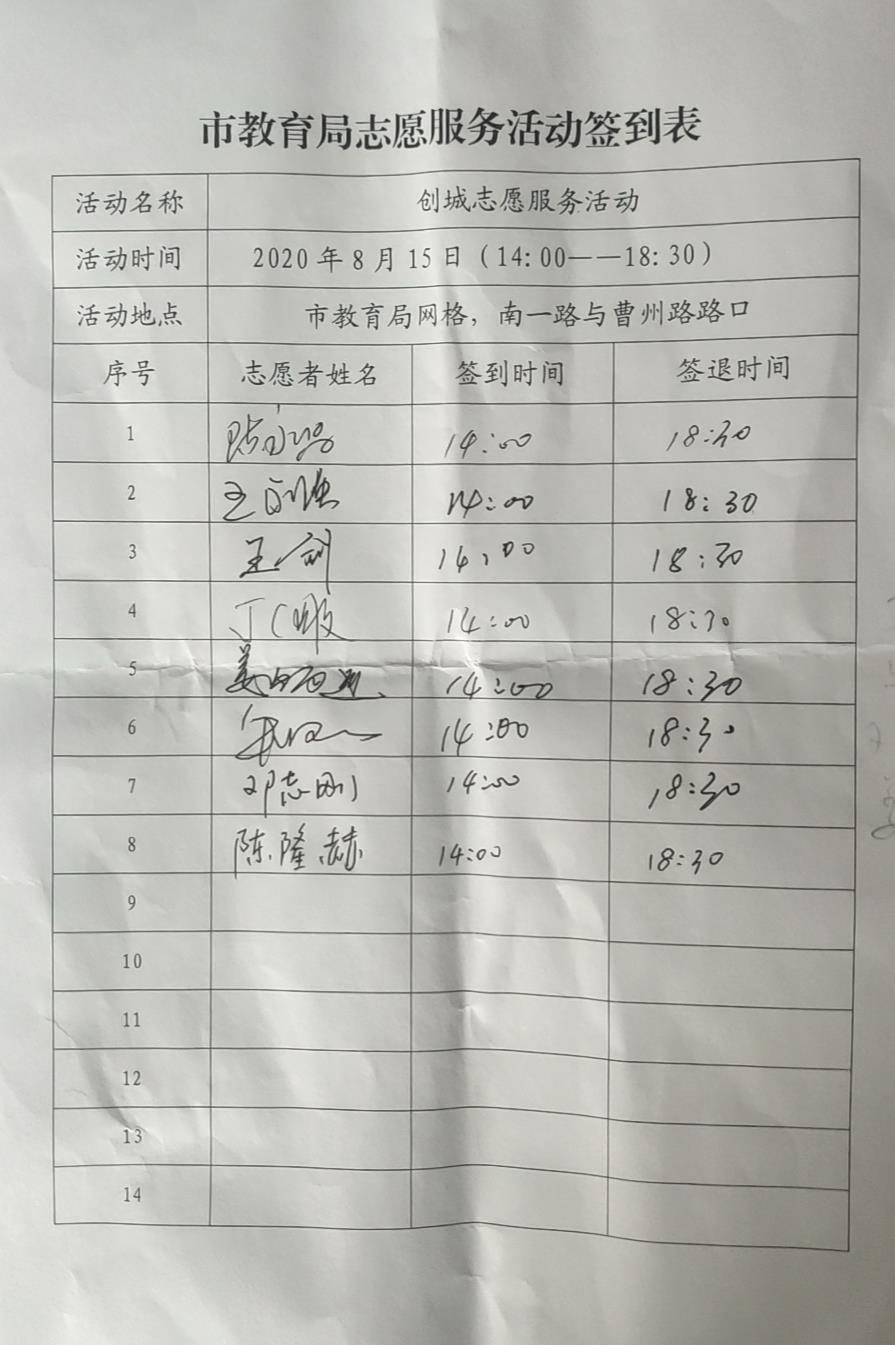 市教育局志愿服务活动签到表
活动名称 创城志愿服务活动
活动时间 2020年8月15日（14:00——18:30）
活动地点 市教育局网格，南一路与曹州路路口
序号 志愿者姓名 签到时间 签退时间
1 14:00 18:30
2 14:00 18:30
3 王剑 14:00 18:30
4 14:00 18:30
5 14:00 18:30
6 14:00 18:30
7 邓志刚 14:00 18:30
8 陈隆赫 14:00 18:30
9
10
11
12
13
14